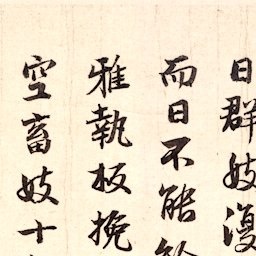 日群妓漫
而日不能
雅執板挽
空畜妓十